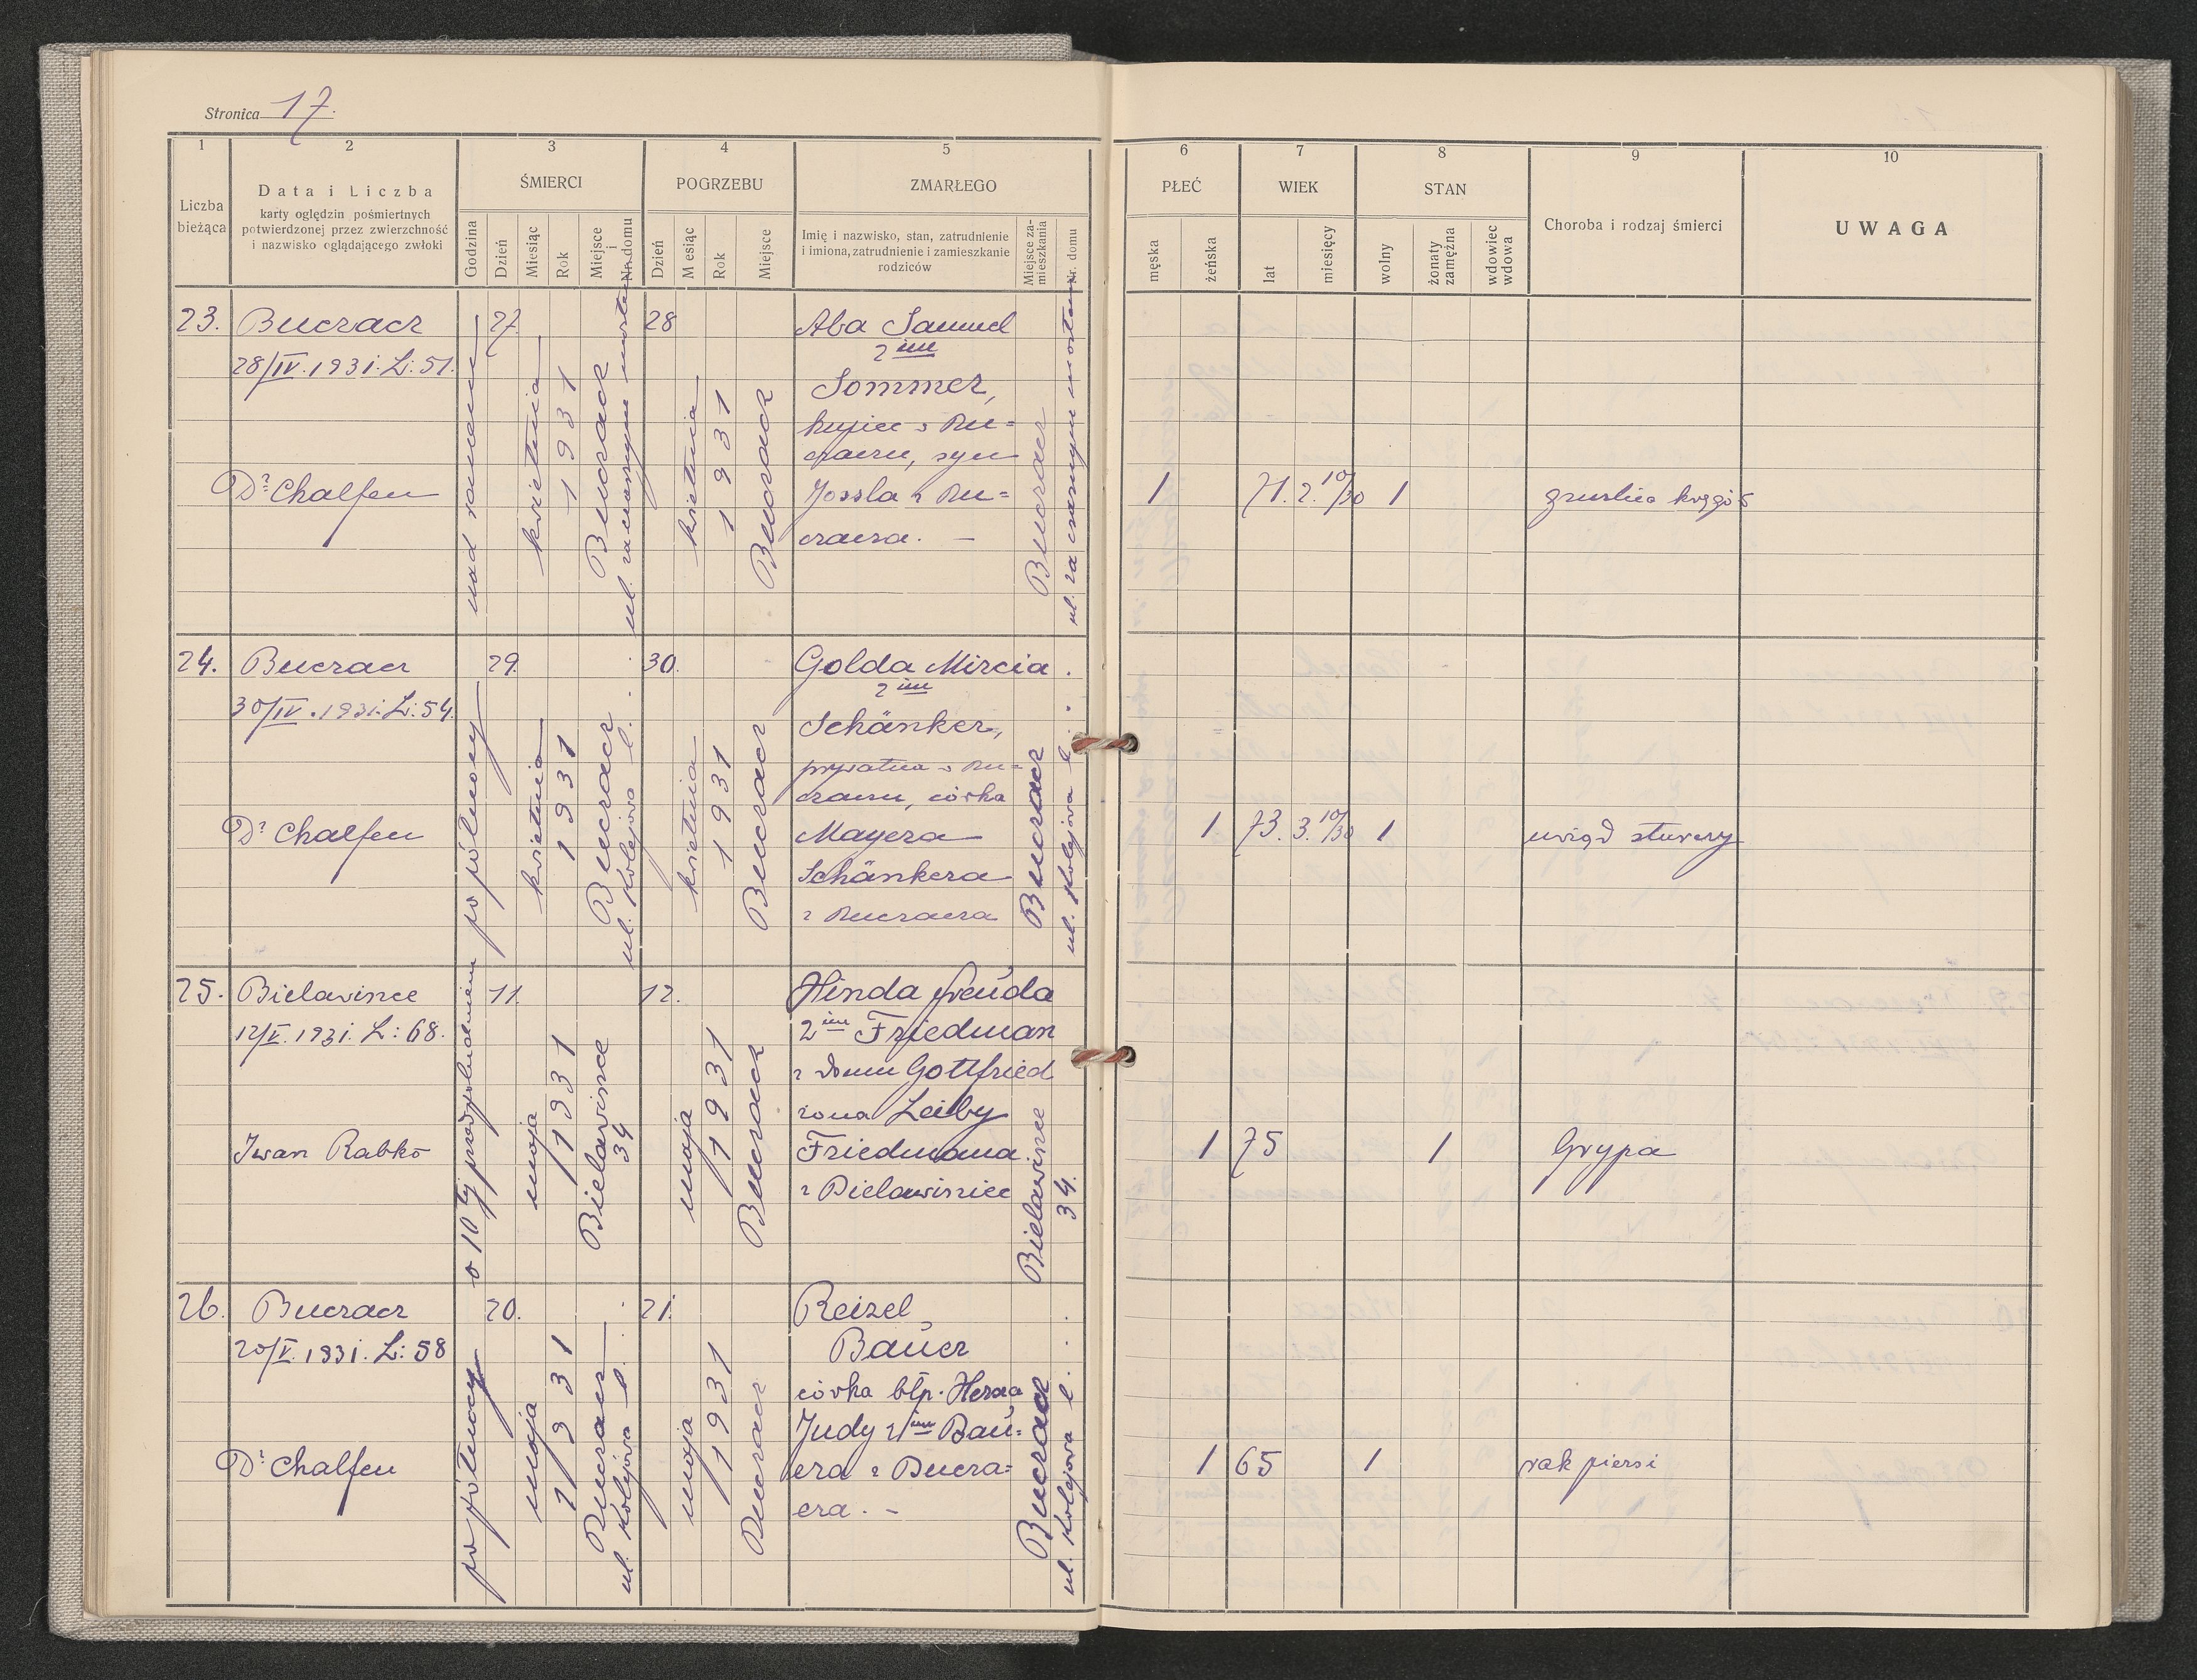 Stronica 17.
1
2
3
4
5
6
7
8
9
10
Liczba
bieżąca
Data i Liczba
karty oględzin pośmiertnych
potwierdzonej przez zwierzchność
i nazwisko oglądającego zwłoki
ŚMIERCI
Godzina
Dzień
Miesiąc
Rok
Miejsce
i
Nr. domu
POGRZEBU
Dzień
M esiąc
Rok
Miejsce
ZMARŁEGO
Imię i nazwisko, stan, zatrudnienie
i imiona, zatrudnienie i zamieszkanie
rodziców
Miejsce za-
mieszkania
Nr. domu
PŁEĆ
męska
żeńska
WIEK
lat
miesięcy
STAN
wolny
żonaty
zamężna
wdowiec
wdowa
Choroba i rodzaj śmierci
UWAGA
23.
Buczacz
28/IV. 1931. L: 51.
Dr Chalfen
nad ranem
27.
kwietnia
1931
Buczacz
ul. za czarnym mostem
28
kwietnia
1931
Buczacz
Aba Samuel
2 im
Sommer,
kupiec w Bu=
czaczu, syn
Jossla z Bu=
czacza. —
Buczacz
ul. za czarnym mostem
1
71. 2. 10/30
1
gruźlica kręgów
24.
Buczacz
30/IV. 1931. L: 54.
Dr Chalfen
po północy
29.
kwietnia
1931
Buczacz
ul. Kolejowa l.
30.
kwietnia
1931
Buczacz
Golda Mircia
2 im
Schänker,
prywatna w Bu=
czaczu, córka
Mayera
Schänkera
z Buczacza
Buczacz
ul. Kolejowa l.
1
73. 3. 10/30
1
uwiąd starczy
25.
Bielawince
12/V. 1931. L: 68.
Iwan Rabko
o 10tej przedpołudniem
11.
maja
1931
Bielawince
34
12.
maja
1931
Buczacz
Hinda Freuda
2 im Friedman
z domu Gottfried
żona Leiby
Friedmana
z Bielawiniec
Bielawince
34.
1
75
1
Grypa
26.
Buczacz
20/V. 1931. L: 58
Dr Chalfen
po północy
20.
maja
1931
Buczacz
ul. Kolejowa l.
21.
maja
1931
Buczacz
Reizel
Bauer
córka błp. Hersza
Judy 2 im Bau=
era z Bucza=
cza. –
Buczacz
ul. Kolejowa l.
1
65
1
rak piersi